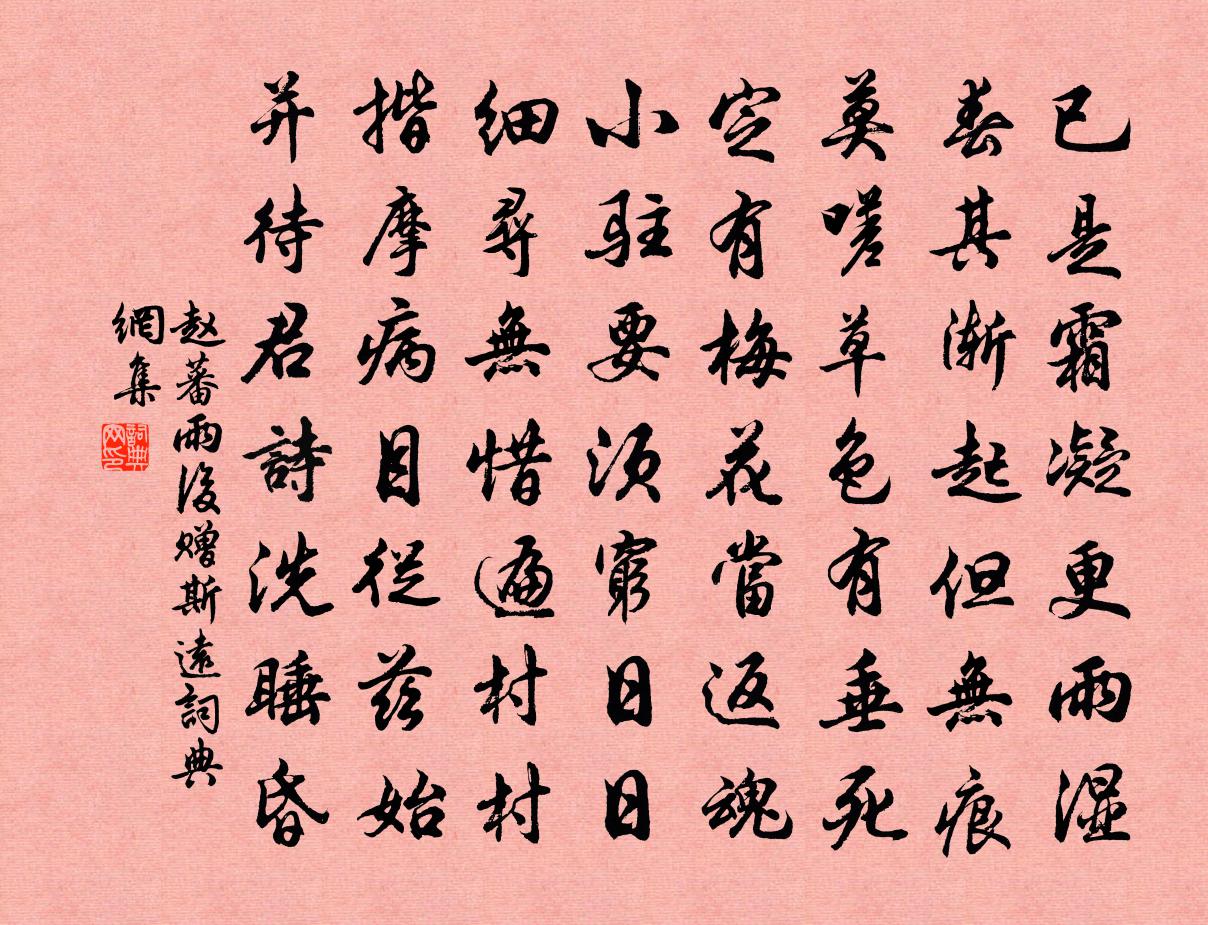 已是霜凝更雨湿
春其渐起但無痕
莫嗟草色有垂死
定有梅花當返魂
小駐要須窮日日
細尋無惜遍村村
揩摩病目從茲始
并待君詩洗睡昏
赵蕃雨後赠斯遠詞典
網集
詞典
网印